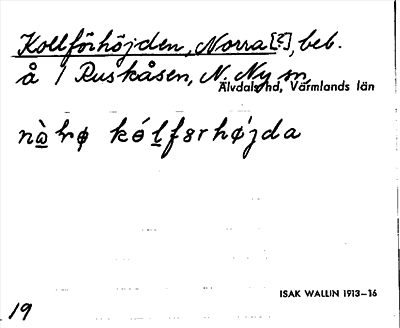 Kollförhöjden, Norra [?], beb.
å 1 Ruskåsen, N. Ny sn,
Älvdals hd, Värmlands län
kólfɛrhǿjda
ISAK WALLIN 1913–16
19